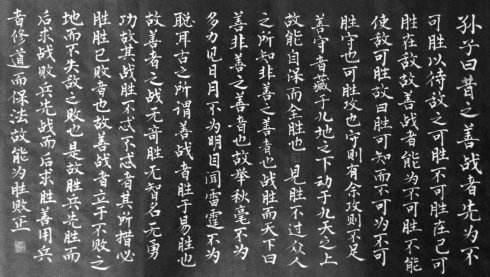 孙子曰昔之善战者先为不
可胜以待敌之可胜不可胜在己可
胜在敌故善战者能为不可胜不能
使敌可胜故曰胜可知而不可为不可
胜守也可胜攻也守则有余攻则不足
善守者藏于九地之下动于九天之上
故能自保而全胜也 见胜不过众人
之所知非善之善者也战胜而天下曰
善非善之善者也故举秋毫不为
多力见日月不为明目闻雷霆不为
聪耳古之所谓善战者胜于易胜也
故善者之战无奇胜无智名无勇
功故其战胜不忒不忒者其所措必
胜胜已败者也故善战者立于不败之
地而不失敌之败也是故胜兵先胜而
后求战败兵先战而后求胜善用兵
者修道而保法故能为胜败正